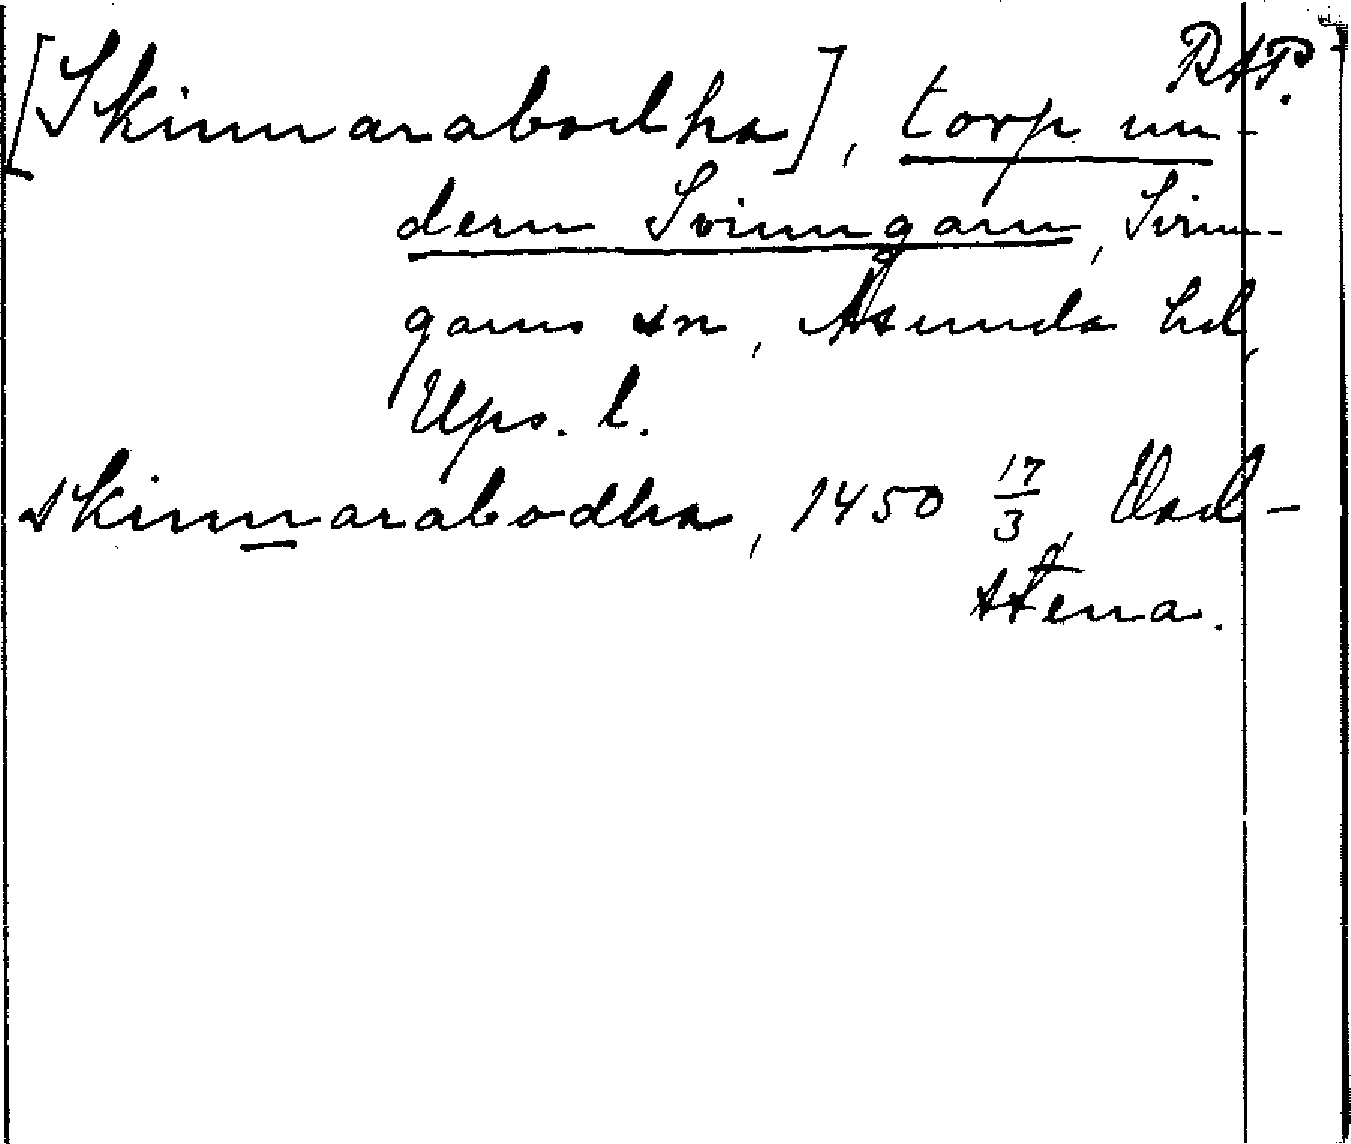 RAP.
[Skinnarabodha], torp un-
dern Svinngarn, Svinn-
garns sn, Åsunda hd,
Ups. l.
skinnarabodha, 1450 17/3, Vad-
stena.